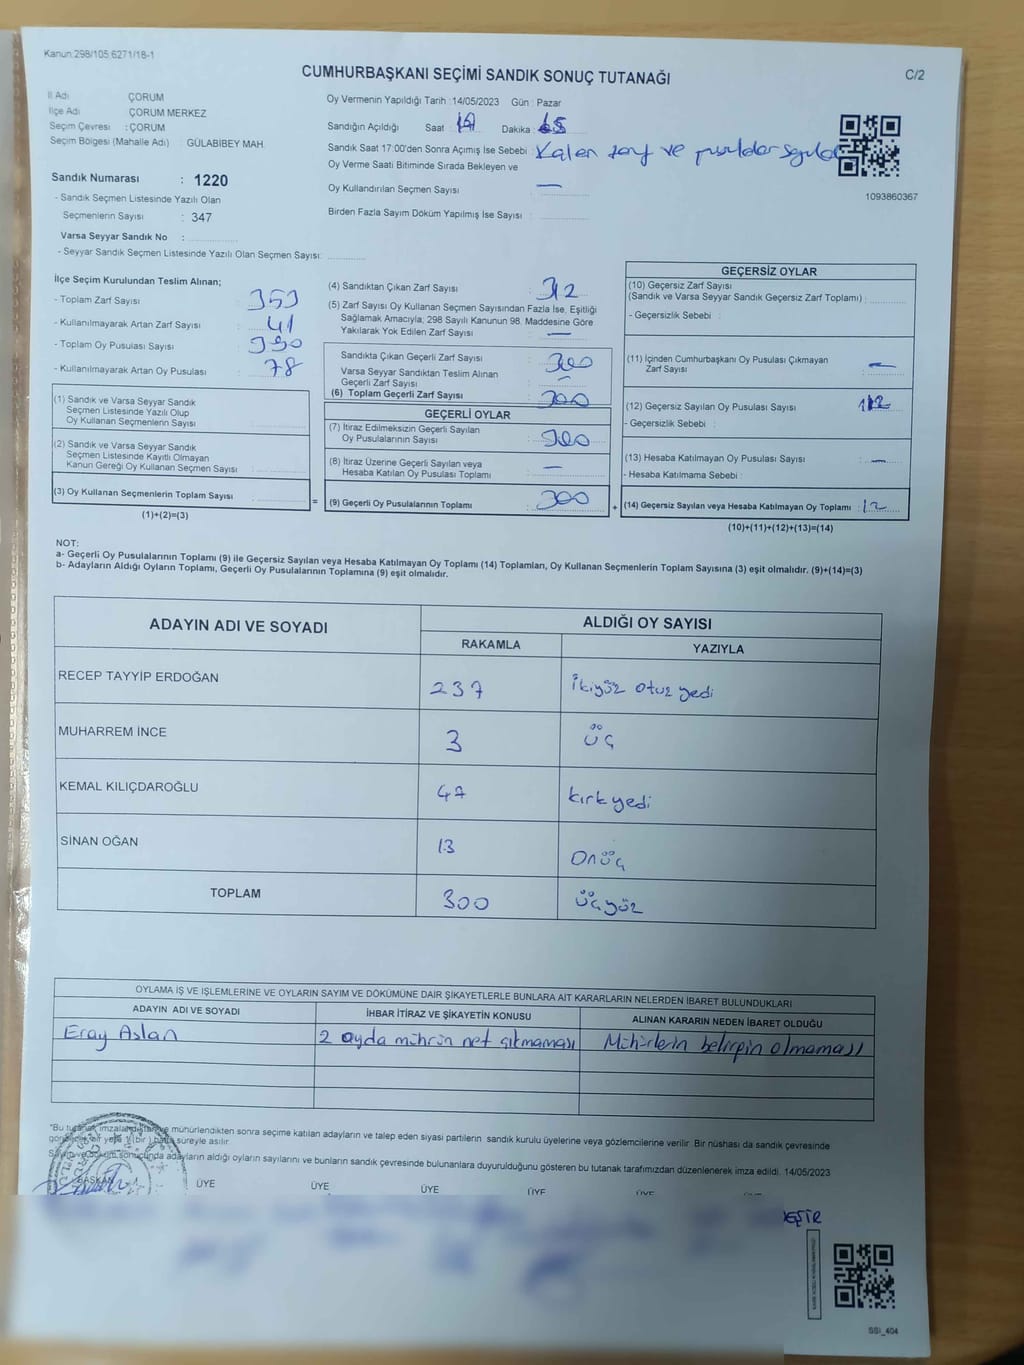 Kanun:298/105:6271/18-1
CUMHURBAŞKANI SEÇİMİ SANDIK SONUÇ TUTANAĞI
C/2
İl Adı ÇORUM
İlçe Adı ÇORUM MERKEZ
Seçim Çevresi : ÇORUM
Seçim Bölgesi (Mahalle Adı) GÜLABİBEY MAH.
Sandık Numarası : 1220
- Sandık Seçmen Listesinde Yazılı Olan
Seçmenlerin Sayısı : 347
Varsa Seyyar Sandık No :
- Seyyar Sandık Seçmen Listesinde Yazılı Olan Seçmen Sayısı:
Oy Vermenin Yapıldığı Tarih :14/05/2023 Gün : Pazar
Sandığın Açıldığı Saat : Dakika :
Sandık Saat 17:00'den Sonra Açımış İse Sebebi : Kalan zarf ve pusulalar
Oy Verme Saati Bitiminde Sırada Bekleyen ve
Oy Kullandırılan Seçmen Sayısı : —
Birden Fazla Sayım Döküm Yapılmış İse Sayısı :
1093860367
İlçe Seçim Kurulundan Teslim Alınan;
- Toplam Zarf Sayısı : 353
- Kullanılmayarak Artan Zarf Sayısı : 41
- Toplam Oy Pusulası Sayısı : 390
- Kullanılmayarak Artan Oy Pusulası : 78
(1) Sandık ve Varsa Seyyar Sandık
Seçmen Listesinde Yazılı Olup
Oy Kullanan Seçmenlerin Sayısı :
(2) Sandık ve Varsa Seyyar Sandık
Seçmen Listesinde Kayıtlı Olmayan
Kanun Gereği Oy Kullanan Seçmen Sayısı :
(3) Oy Kullanan Seçmenlerin Toplam Sayısı :
(1)+(2)=(3)
=
(4) Sandıktan Çıkan Zarf Sayısı : 312
(5) Zarf Sayısı Oy Kullanan Seçmen Sayısından Fazla İse, Eşitliği
Sağlamak Amacıyla; 298 Sayılı Kanunun 98. Maddesine Göre
Yakılarak Yok Edilen Zarf Sayısı : —
Sandıkta Çıkan Geçerli Zarf Sayısı : 300
Varsa Seyyar Sandıktan Teslim Alınan
Geçerli Zarf Sayısı : —
(6) Toplam Geçerli Zarf Sayısı : 300
GEÇERLİ OYLAR
(7) İtiraz Edilmeksizin Geçerli Sayılan
Oy Pusulalarının Sayısı : 300
(8) İtiraz Üzerine Geçerli Sayılan veya
Hesaba Katılan Oy Pusulası Toplamı : —
(9) Geçerli Oy Pusulalarının Toplamı : 300
+
GEÇERSİZ OYLAR
(10) Geçersiz Zarf Sayısı
(Sandık ve Varsa Seyyar Sandık Geçersiz Zarf Toplamı) :
- Geçersizlik Sebebi :
(11) İçinden Cumhurbaşkanı Oy Pusulası Çıkmayan
Zarf Sayısı : —
(12) Geçersiz Sayılan Oy Pusulası Sayısı : 12
- Geçersizlik Sebebi :
(13) Hesaba Katılmayan Oy Pusulası Sayısı : —
- Hesaba Katılmama Sebebi :
(14) Geçersiz Sayılan veya Hesaba Katılmayan Oy Toplamı : 12
(10)+(11)+(12)+(13)=(14)
NOT:
a- Geçerli Oy Pusulalarının Toplamı (9) ile Geçersiz Sayılan veya Hesaba Katılmayan Oy Toplamı (14) Toplamları, Oy Kullanan Seçmenlerin Toplam Sayısına (3) eşit olmalıdır. (9)+(14)=(3)
b- Adayların Aldığı Oyların Toplamı, Geçerli Oy Pusulalarının Toplamına (9) eşit olmalıdır.
ADAYIN ADI VE SOYADI
ALDIĞI OY SAYISI
RAKAMLA YAZIYLA
RECEP TAYYİP ERDOĞAN 237 İkiyüz otuz yedi
MUHARREM İNCE 3 üç
KEMAL KILIÇDAROĞLU 47 kırk yedi
SİNAN OĞAN 13 Onüç
TOPLAM 300 üçyüz
OYLAMA İŞ VE İŞLEMLERİNE VE OYLARIN SAYIM VE DÖKÜMÜNE DAİR ŞİKAYETLERLE BUNLARA AİT KARARLARIN NELERDEN İBARET BULUNDUKLARI
ADAYIN ADI VE SOYADI İHBAR İTİRAZ VE ŞİKAYETİN KONUSU ALINAN KARARIN NEDEN İBARET OLDUĞU
Eray Aslan 2 oyda mührün net çıkmaması Mühürlerin belirgin olmaması
"Bu tutanak imzalandıktan ve mühürlendikten sonra seçime katılan adayların ve talep eden siyasi partilerin sandık kurulu üyelerine veya gözlemcilerine verilir. Bir nüshası da sandık çevresinde
bir yere 1 (bir) hafta süreyle asılır.
adayların aldığı oyların sayılarını ve bunların sandık çevresinde bulunanlara duyurulduğunu gösteren bu tutanak tarafımızdan düzenlenerek imza edildi. 14/05/2023
BAŞKAN ÜYE ÜYE ÜYE ÜYE ÜYE
SSİ_404